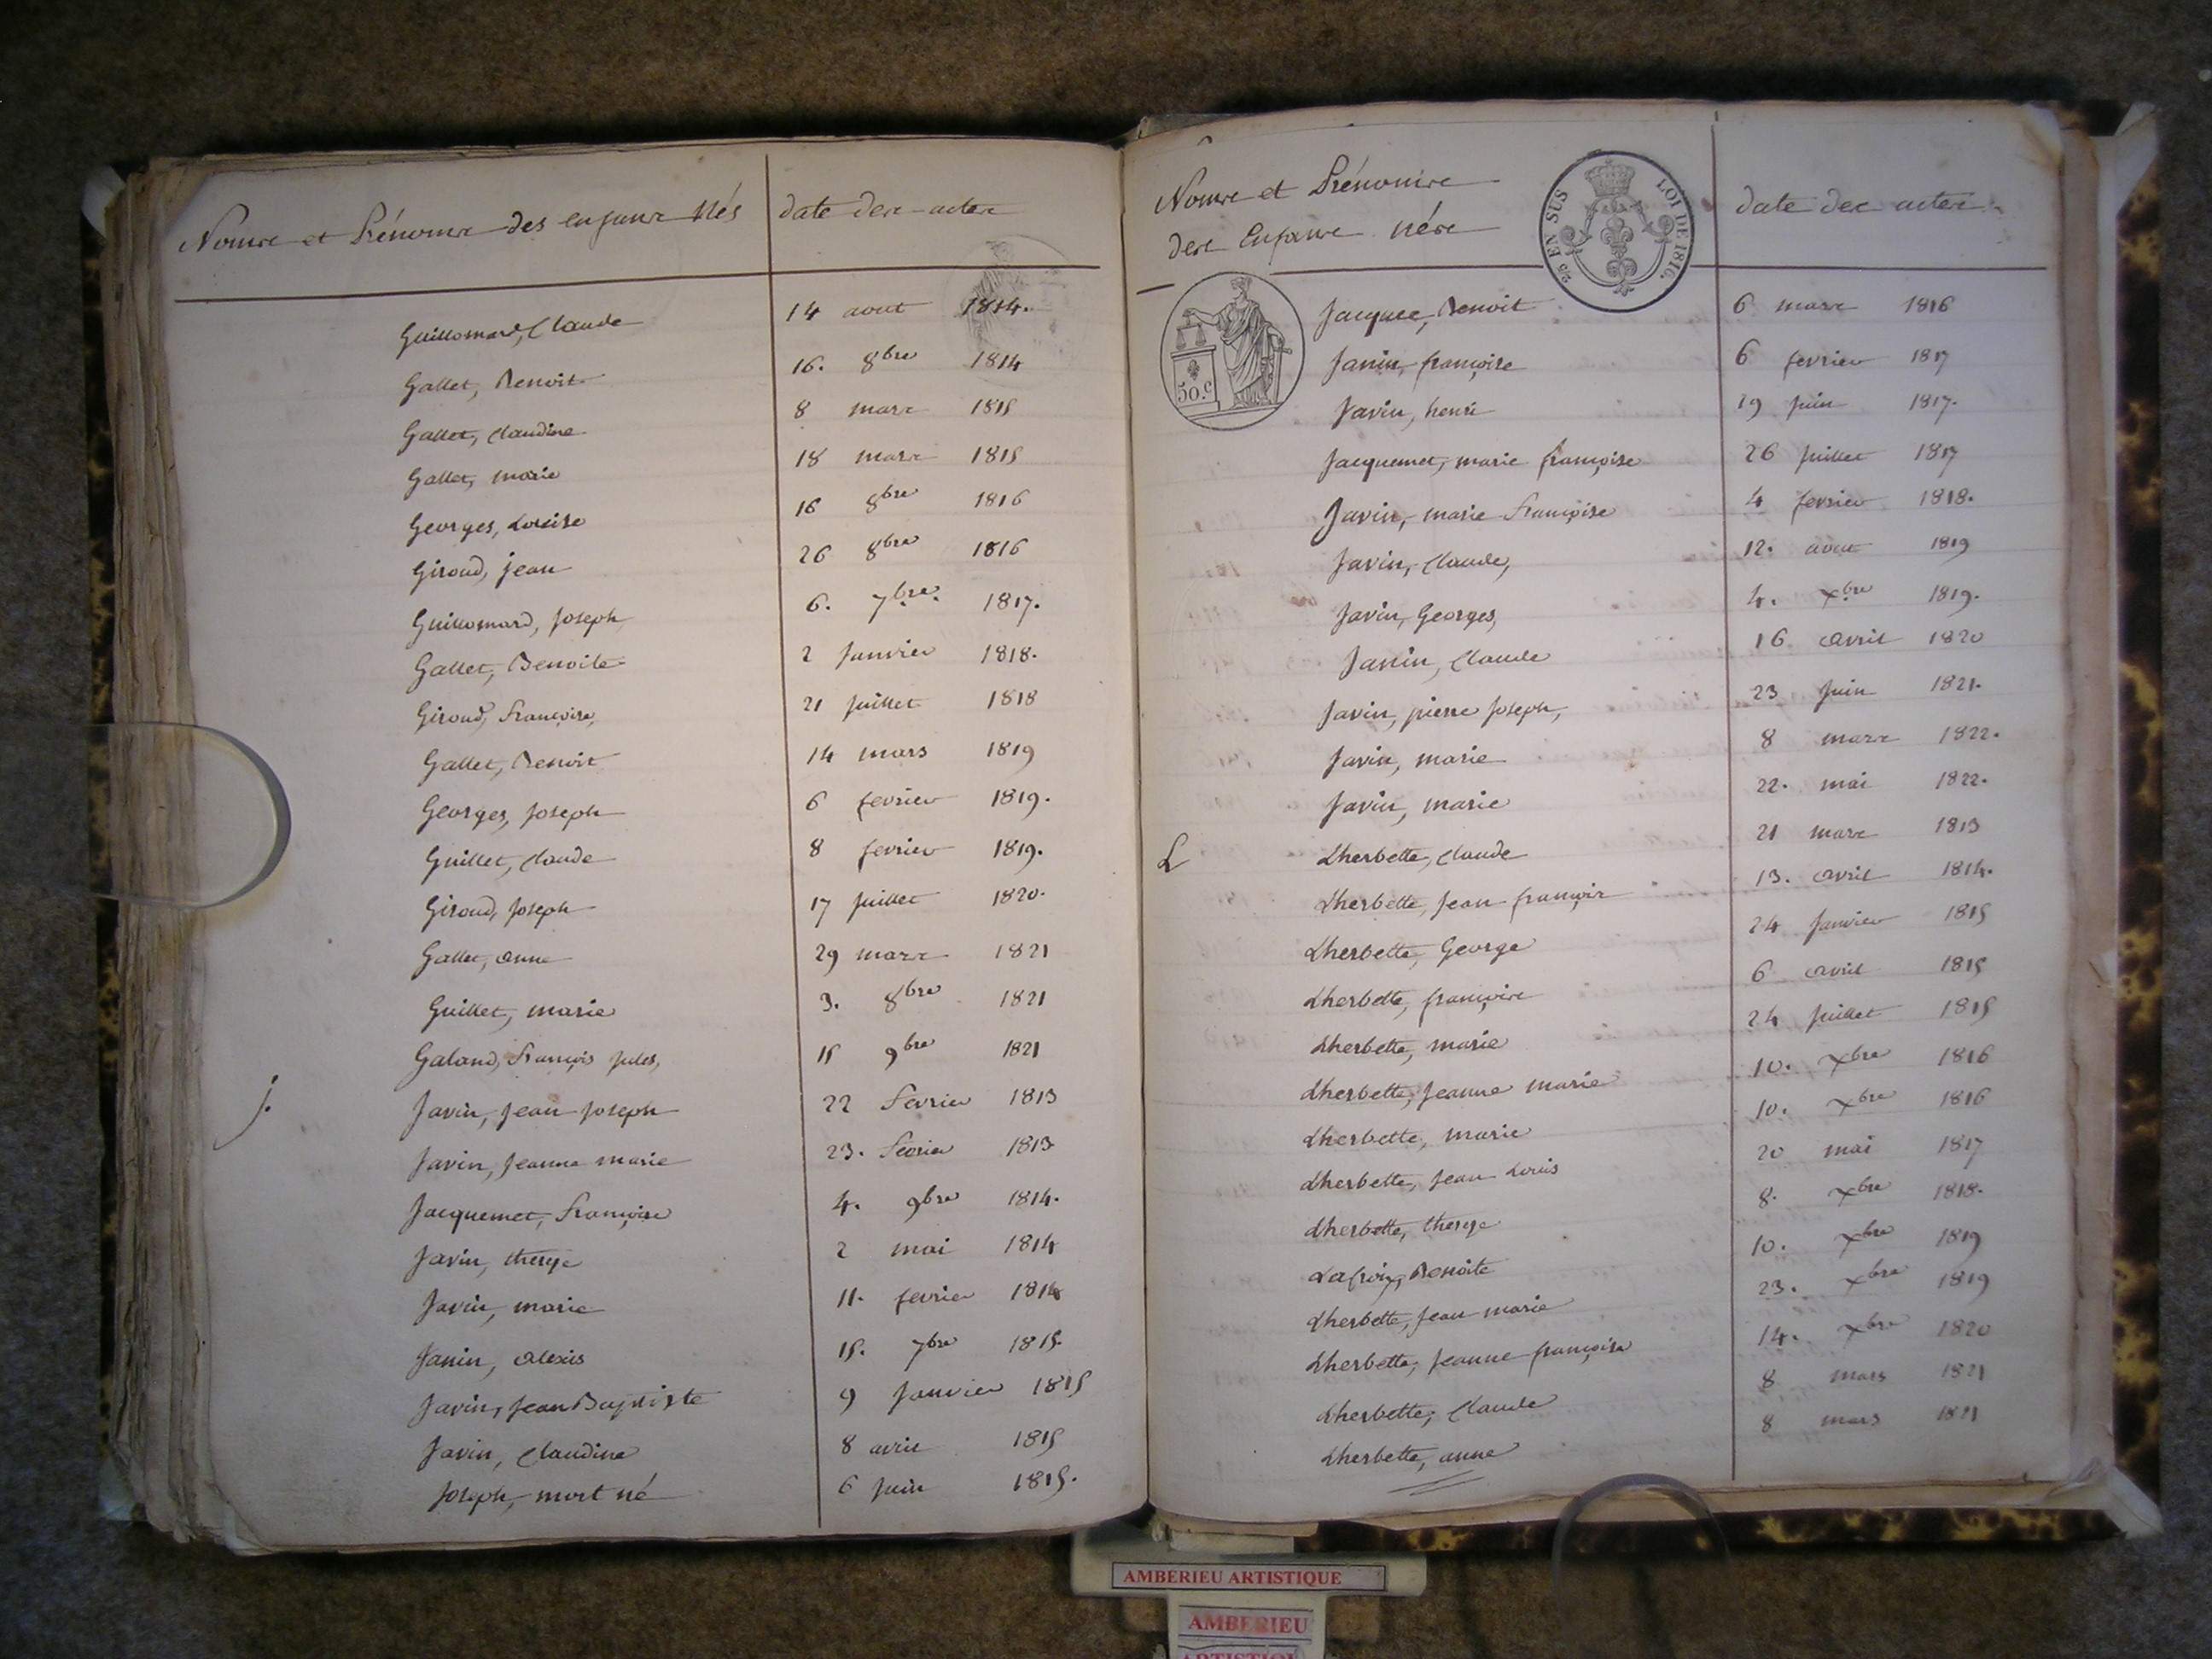 Noms et Prénoms des enfans Nés date des actes
Guillomard, Claude 14 aout 1814.
Gallet, Benoit 16. 8bre 1814
Gallet, Claudine 8 mars 1815
Gallet, marie 18 mars 1815
Georges, Louise 16 8bre 1816
Giroud, jean 26 8bre 1816
Guillomard, Joseph 6. 7bre. 1817.
Gallet, Benoite 2 Janvier 1818.
Giroud, françoise, 21 Juillet 1818
Gallet, Benoit 14 mars 1819
Georges, Joseph 6 fevrier 1819.
Guillet, Claude 8 fevrier 1819.
Giroud, Joseph 17 Juillet 1820.
Gallet, anne 29 mars 1821
Guillet, marie 3. 8bre 1821
Galand, françois Jules, 15 9bre 1821
J. Javin, Jean Joseph 22 fevrier 1813
Javin, Jeanne marie 23. fevrier 1813
Jacquemet, françoise 4. 9bre 1814.
Javin, therese 2 mai 1814
Javin, marie 11. fevrier 1814
Janin, alexis 15. 7bre 1815.
Javin, Jean Baptiste 9 Janvier 1815
Javin, Claudine 8 avril 1815
Joseph, mort né 6 Juin 1815.
Noms et Prénoms
des Enfans nés
date des actes
2/5 EN SUS LOI DE 1816.
50.c
Jacques, Benoit 6 mars 1816
Janin, françoise 6 fevrier 1817
Javin, henri 29 Juin 1817.
Jacquemet, marie françoise 26 Juillet 1817
Javin, marie françoise 4 fevrier 1818.
Javin, Claude, 12. aout 1819
Javin, Georges, 4. Xbre 1819.
Janin, Claude 16 avril 1820
Javin, pierre Joseph, 23 Juin 1821.
Javin, marie 8 mars 1822.
Javin, marie 22. mai 1822.
L Lherbette, Claude 21 mars 1813
Lherbette, Jean françois 13. avril 1814.
Lherbette, George 24 Janvier 1815
Lherbette, françoise 6 avril 1815
Lherbette, marie 24 Juillet 1815
Lherbette, Jeanne marie 10. Xbre 1816
Lherbette, marie 10. Xbre 1816
Lherbette, Jean Louis 20 mai 1817
Lherbette, therese 8. Xbre 1818.
Lacroix, Benoite 10. Xbre 1819
Lherbette, Jean marie 23. Xbre 1819
Lherbette, Jeanne françoise 14. Xbre 1820
Lherbette, Claude 8 mars 1821
Lherbette, anne 8 mars 1821
AMBERIEU ARTISTIQUE
AMBERIEU
ARTISTIQUE